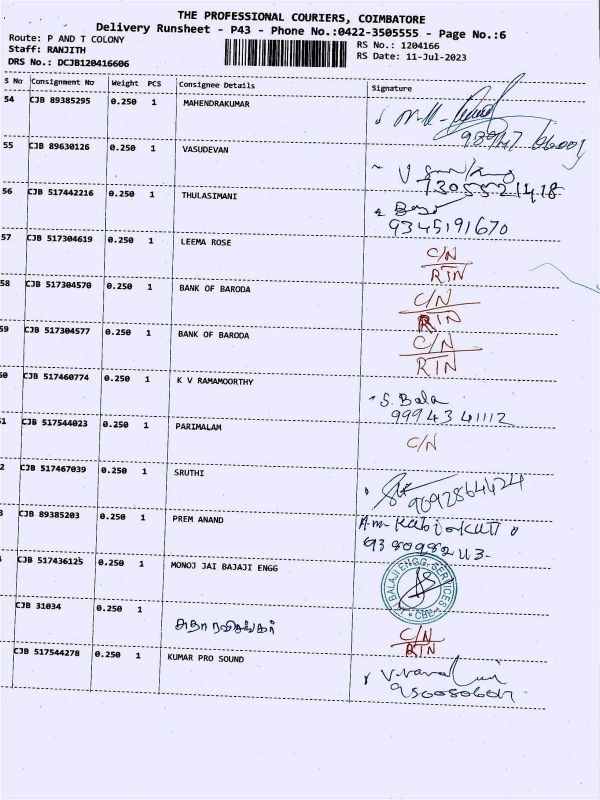 THE PROFESSIONAL COURIERS, COIMBATORE
Delivery Runsheet - P43 - Phone No.:0422-3505555 - Page No.:6
Route: P AND T COLONY
Staff: RANJITH
DRS No.: DCJB120416606
RS No.: 1204166
RS Date: 11-Jul-2023
S No Consignment No Weight PCS Consignee Details Signature
54 CJB 89385295 0.250 1 MAHENDRAKUMAR
55 CJB 89630126 0.250 1 VASUDEVAN
56 CJB 517442216 0.250 1 THULASIMANI
9345191670
57 CJB 517304619 0.250 1 LEEMA ROSE C/N
RTN
58 CJB 517304570 0.250 1 BANK OF BARODA C/N
RTN
59 CJB 517304577 0.250 1 BANK OF BARODA C/N
RTN
0 CJB 517460774 0.250 1 K V RAMAMOORTHY S. Bala
9994341112
1 CJB 517544023 0.250 1 PARIMALAM C/N
2 CJB 517467039 0.250 1 SRUTHI
9092864424
3 CJB 89385203 0.250 1 PREM ANAND
CJB 517436125 0.250 1 MONOJ JAI BAJAJI ENGG
BALAJI ENGG. SERVICES
CJB 31034 0.250 1 C/N
RTN
CJB 517544278 0.250 1 KUMAR PRO SOUND